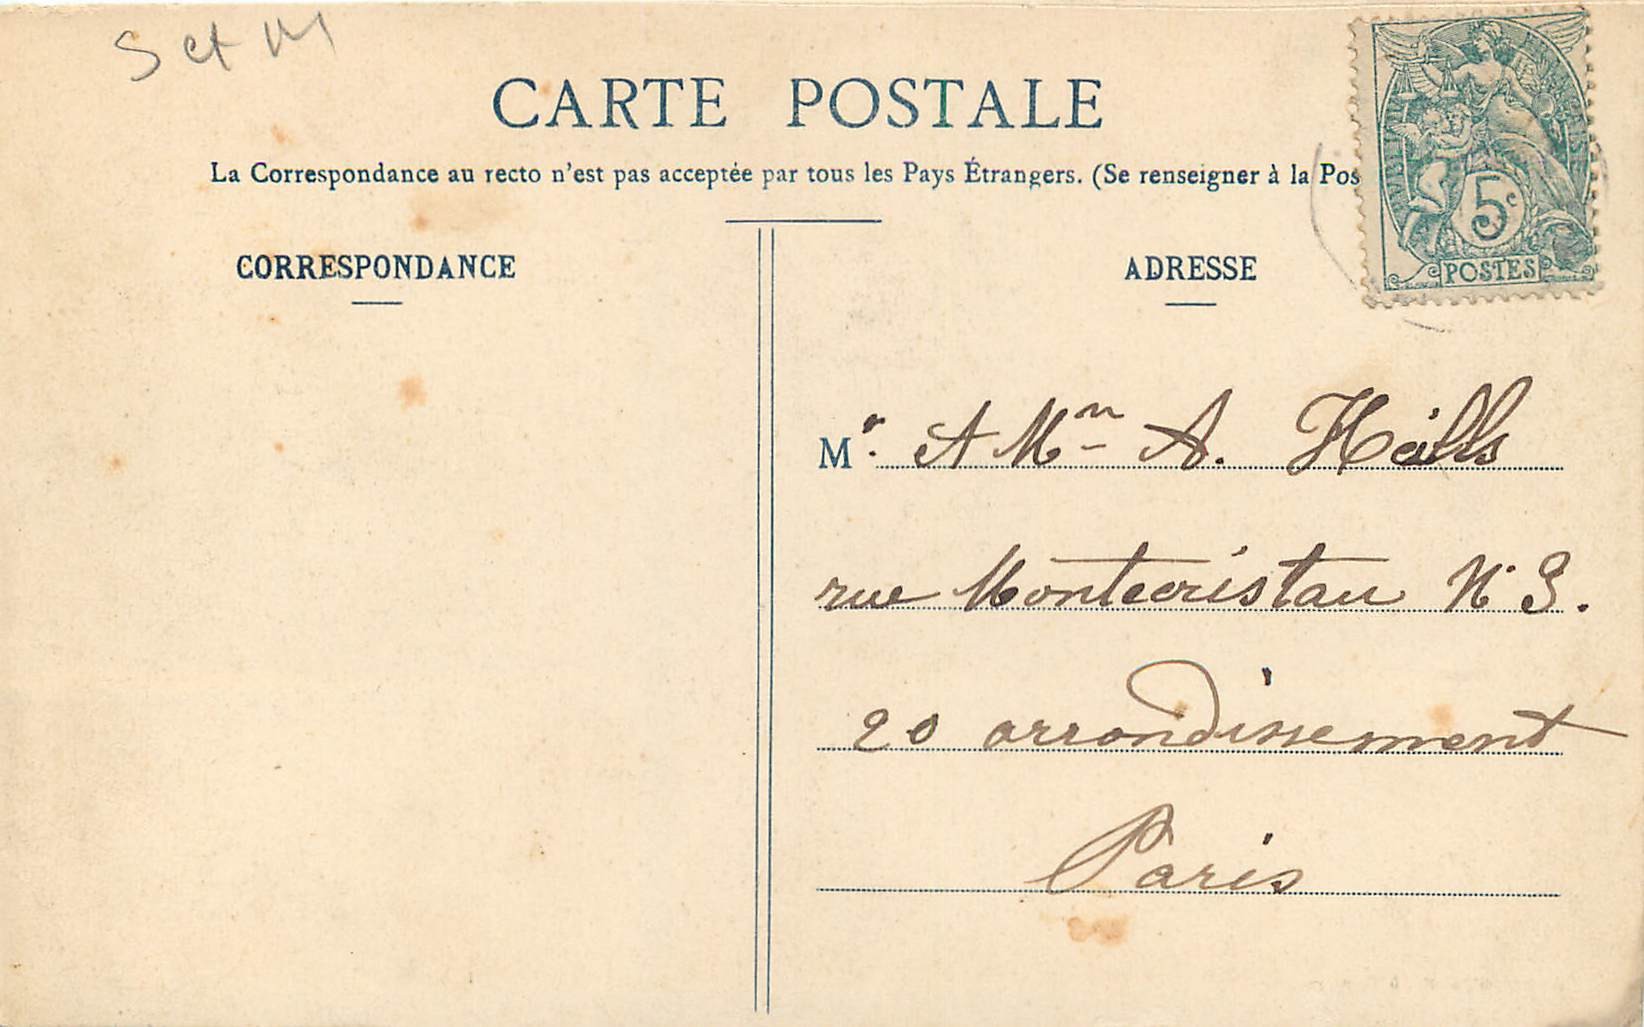 S et M
CARTE POSTALE
La Correspondance au recto n'est pas acceptée par tous les Pays Étrangers. (Se renseigner à la Pos
CORRESPONDANCE
ADRESSE
5c
POSTES
Mr. et Mme A.
rue Montecristau N° 9.
20 arrondissement
Paris